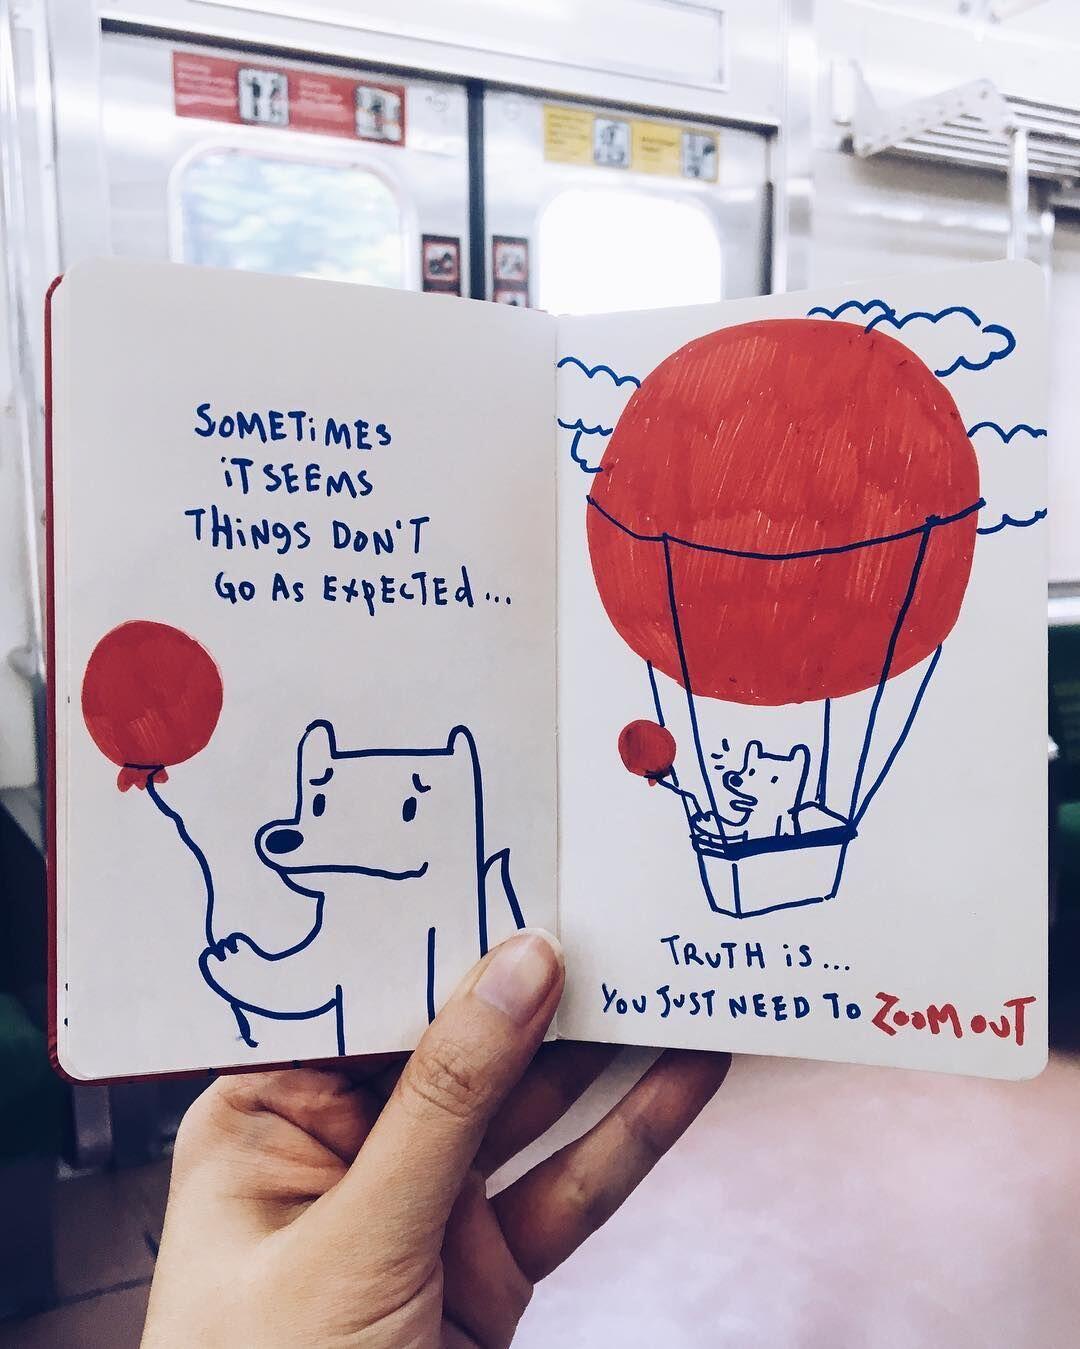 SOMETiMES
iT SEEMS
THiNgS DON'T
GO AS EXPECTEd...
TRUTH iS...
YOU JUST NEED TO ZOOM OUT